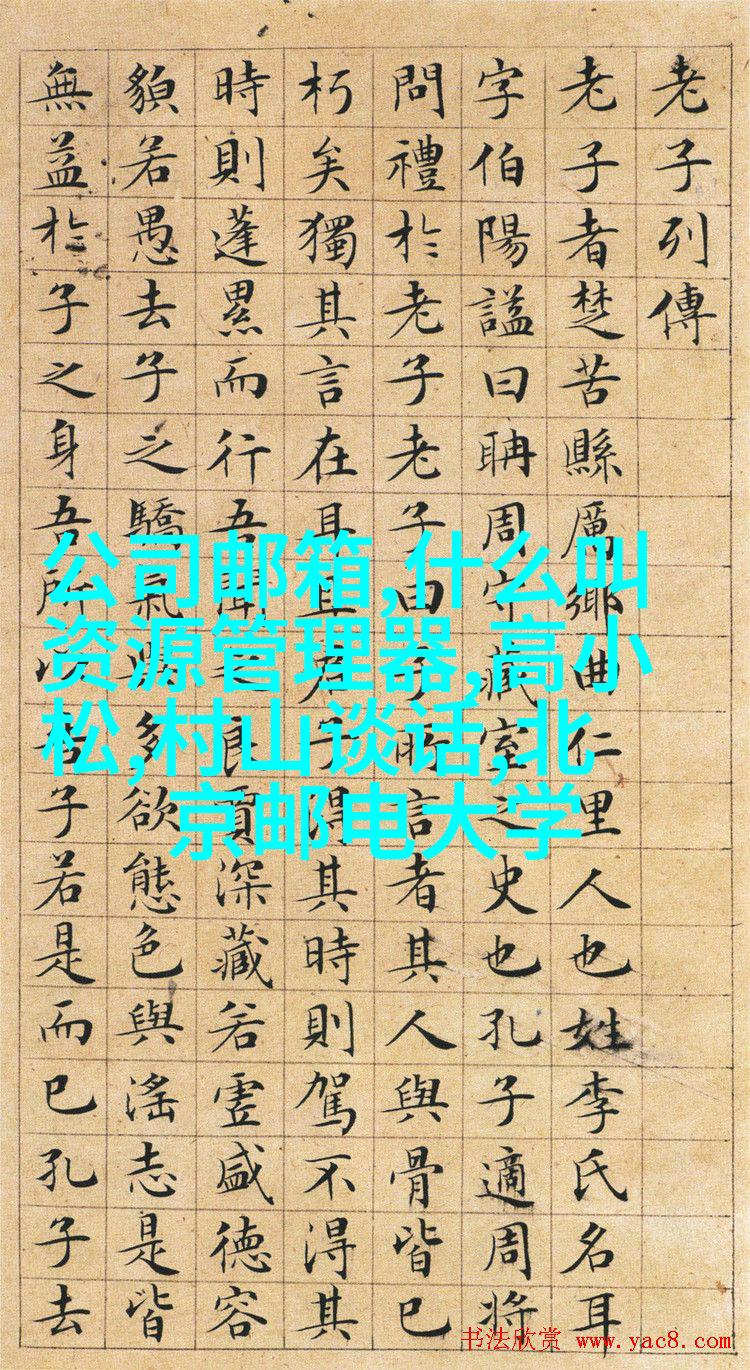 老子列傳
老子者楚苦縣厲鄉曲仁里人也姓李氏名耳
字伯陽謚曰聃周守藏室之史也孔子適周將
問禮於老子老子曰子所言者其人與骨皆已
朽矣獨其言在耳且君子得其時則駕不得其
時則蓬累而行吾聞之良賈深藏若虛盛德容
貌若愚去子之驕氣與多欲態色與滛志是皆
無益於子之身吾所以告子若是而已孔子去
公司邮箱,什么叫
资源管理器,高小
松,村山谈话,北
京邮电大学
书法欣赏 www.yac8.com